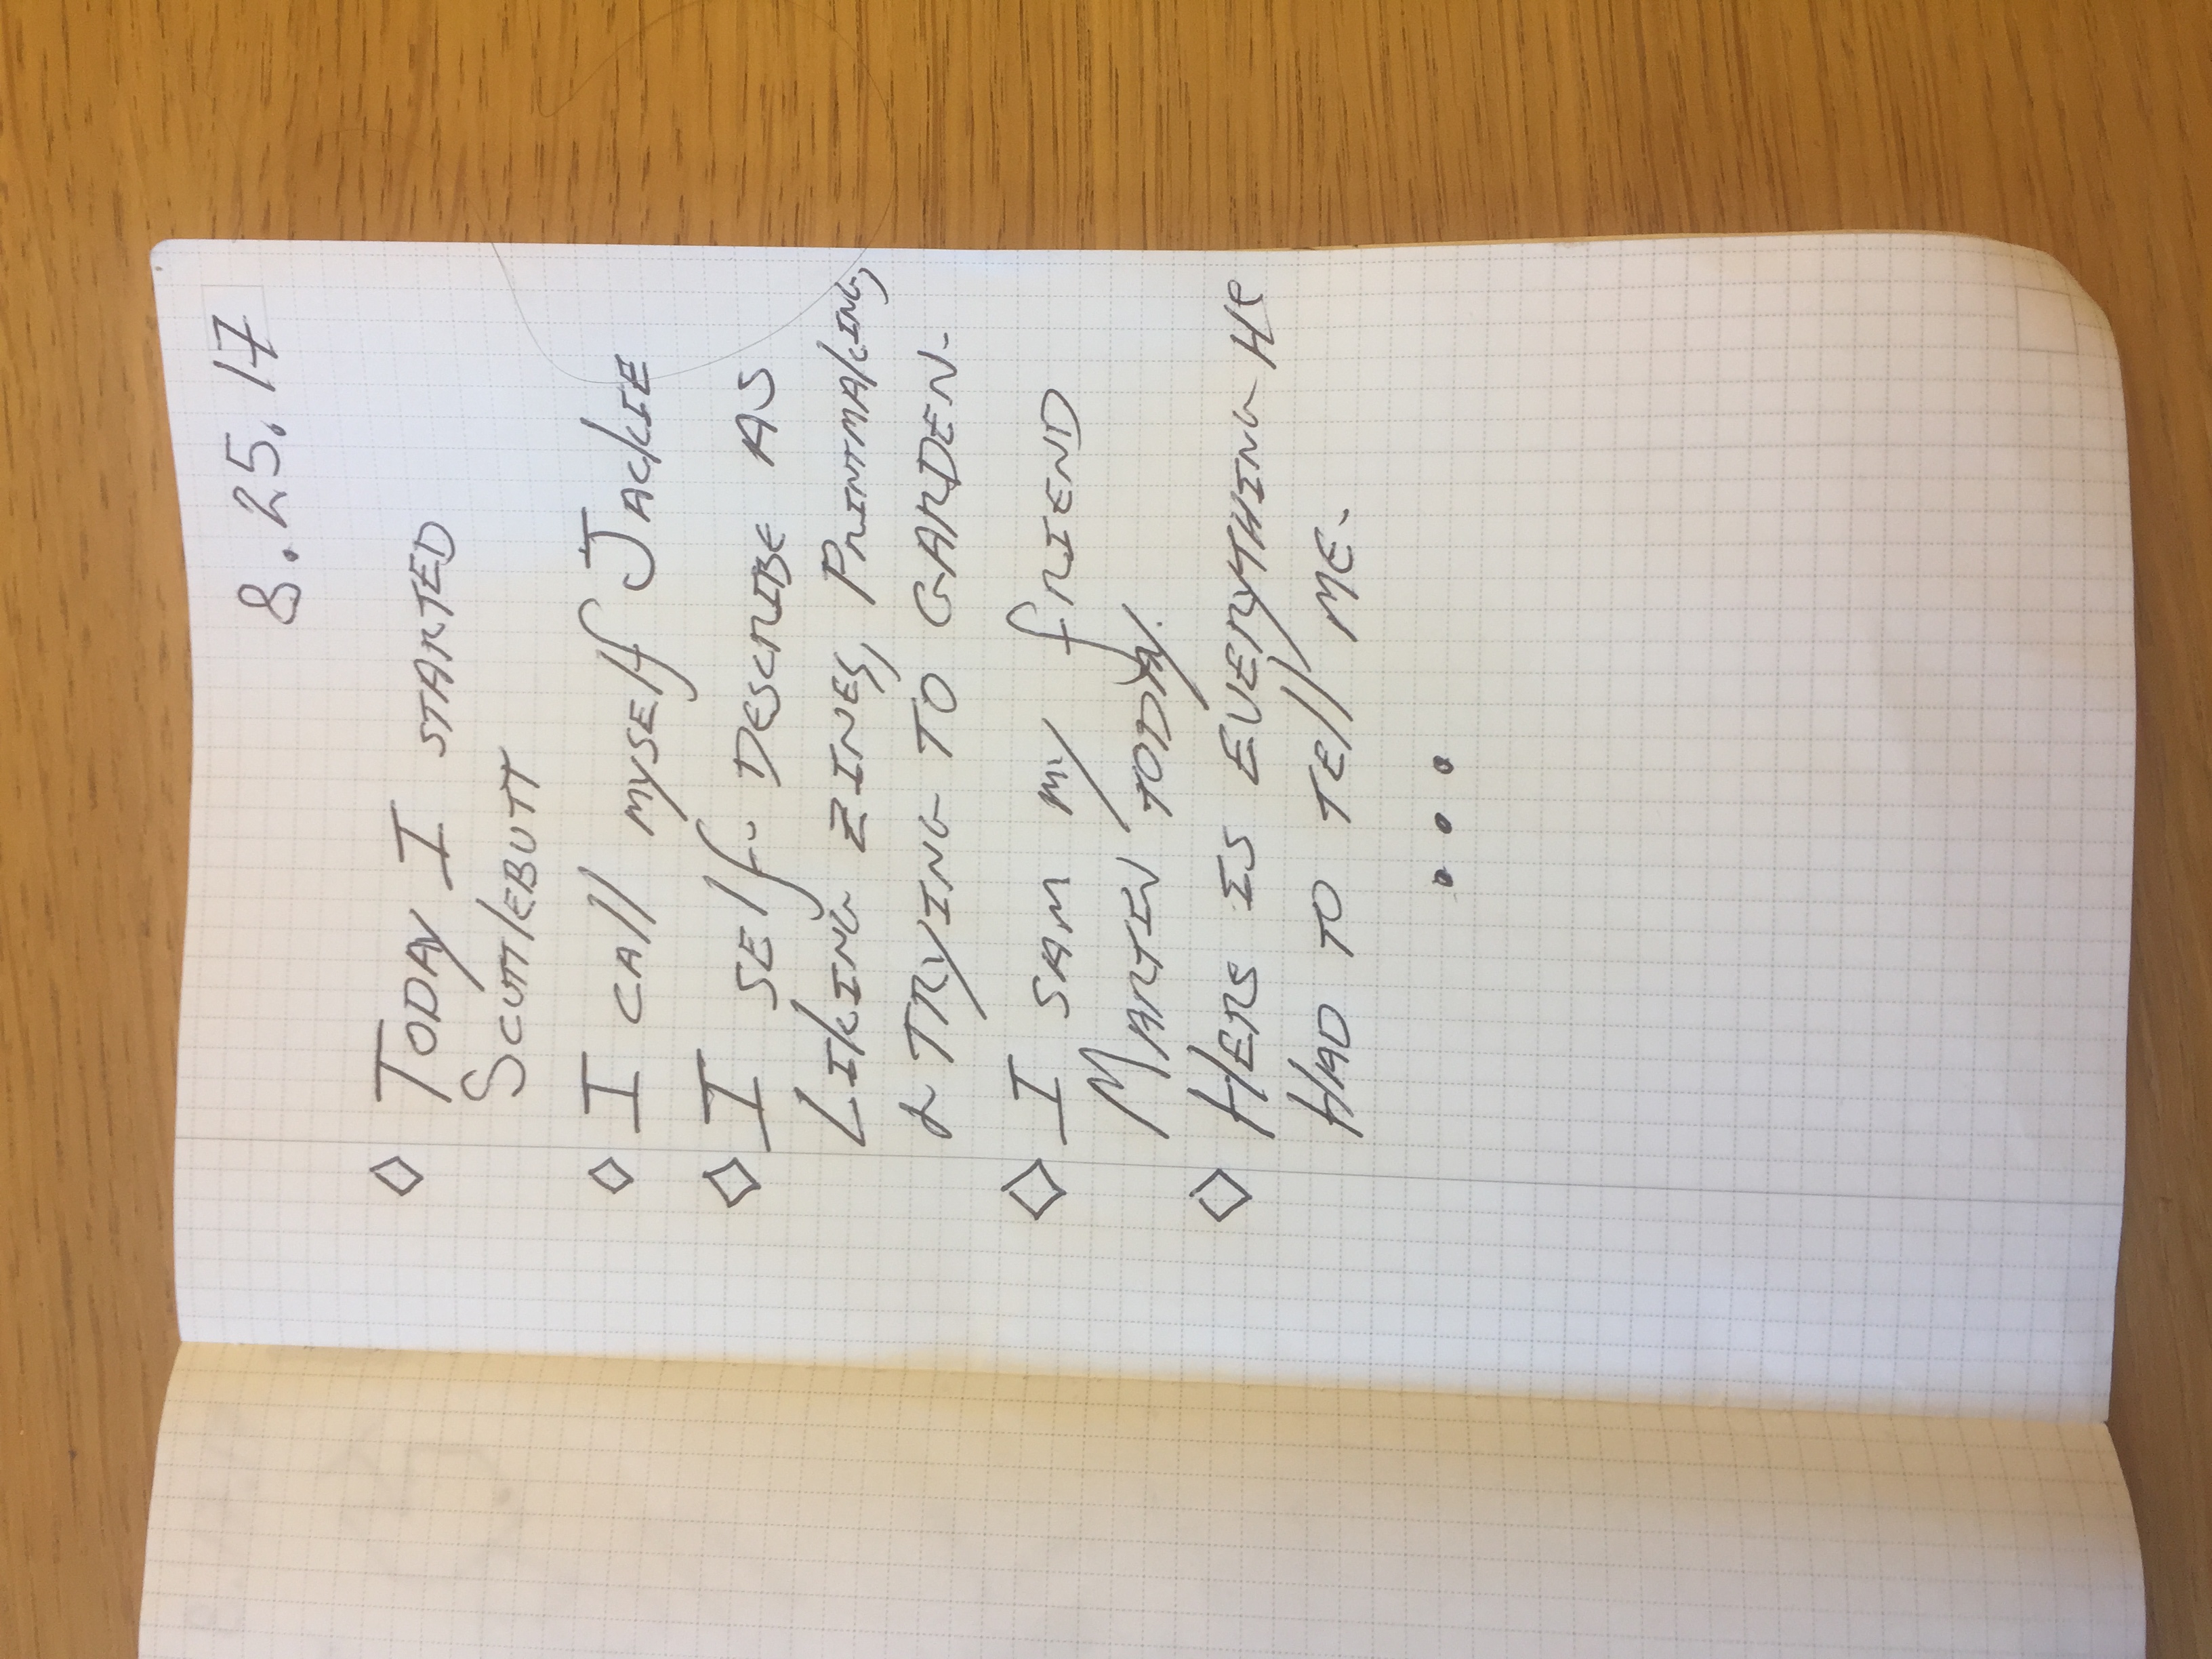 8.25.17
◇ Today I started
Scuttlebutt
◇ I call myself Jackie
◇ I self-describe as
Liking zines, Printmaking,
& trying to garden.
◇ I saw my friend
Martin today.
◇ Here is everything he
had to tell me.
...